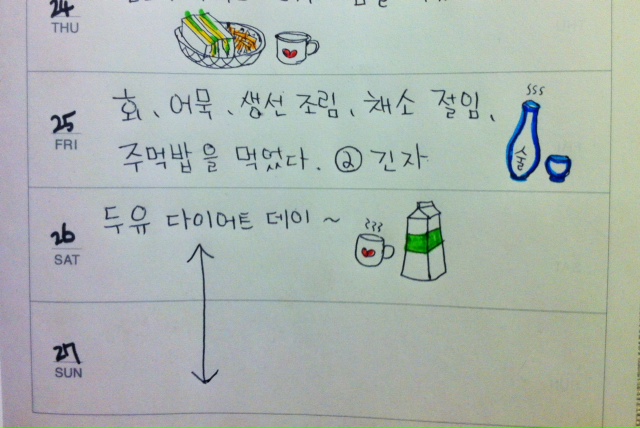 24
THU
25
FRI
회、어묵、생선 조림、채소 절임、
주먹밥을 먹었다. @ 긴자
술
26
SAT
두유 다이어트 데이 ~
27
SUN